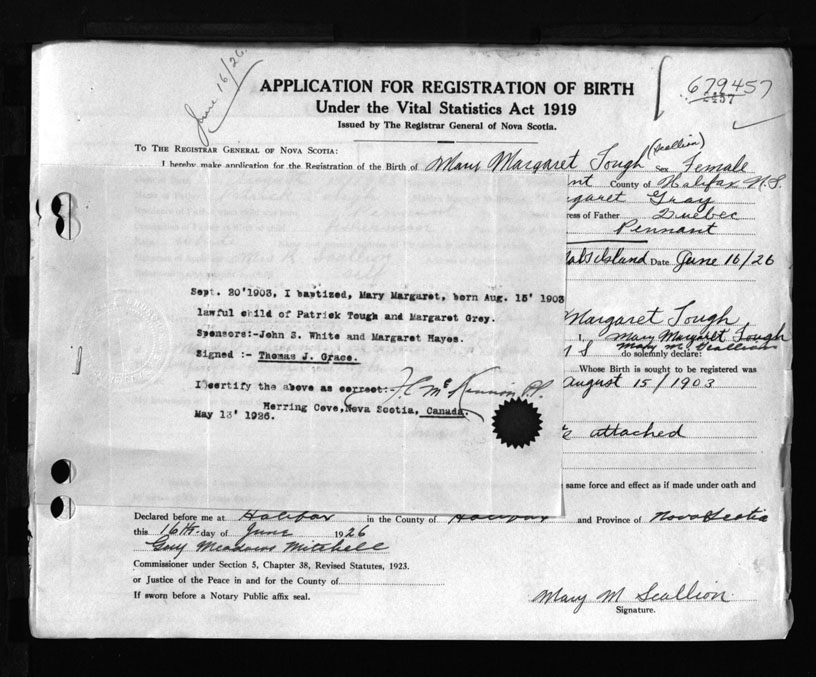 June 16/26.
APPLICATION FOR REGISTRATION OF BIRTH
Under the Vital Statistics Act 1919
Issued by The Registrar General of Nova Scotia.
679457
To The Registrar General of Nova Scotia:
I hereby make application for the Registration of the Birth of Mary Margaret Tough (Scallion) Sex Female
County of Halifax N.S.
Gray
of Father Quebec
Pennant
Island Date June 16/26
Sept. 20'1903, I baptized, Mary Margaret, born Aug. 15' 1903
lawful child of Patrick Tough and Margaret Grey.
Sponsors:-John S. White and Margaret Hayes.
Signed :- Thomas J. Grace.
I certify the above as correct:-
Herring Cove, Nova Scotia, Canada.
May 13' 1926.
Margaret Tough
I, Mary Margaret Tough
Mary M. Scallion
do solemnly declare:
Whose Birth is sought to be registered was
August 15/1903
attached
same force and effect as if made under oath and
Declared before me at Halifax in the County of Halifax and Province of Nova Scotia
this 16th day of June 1926
Guy Meadows Mitchell
Commissioner under Section 5, Chapter 38, Revised Statutes, 1923.
or Justice of the Peace in and for the County of
If sworn before a Notary Public affix seal.
Mary M Scallion
Signature.